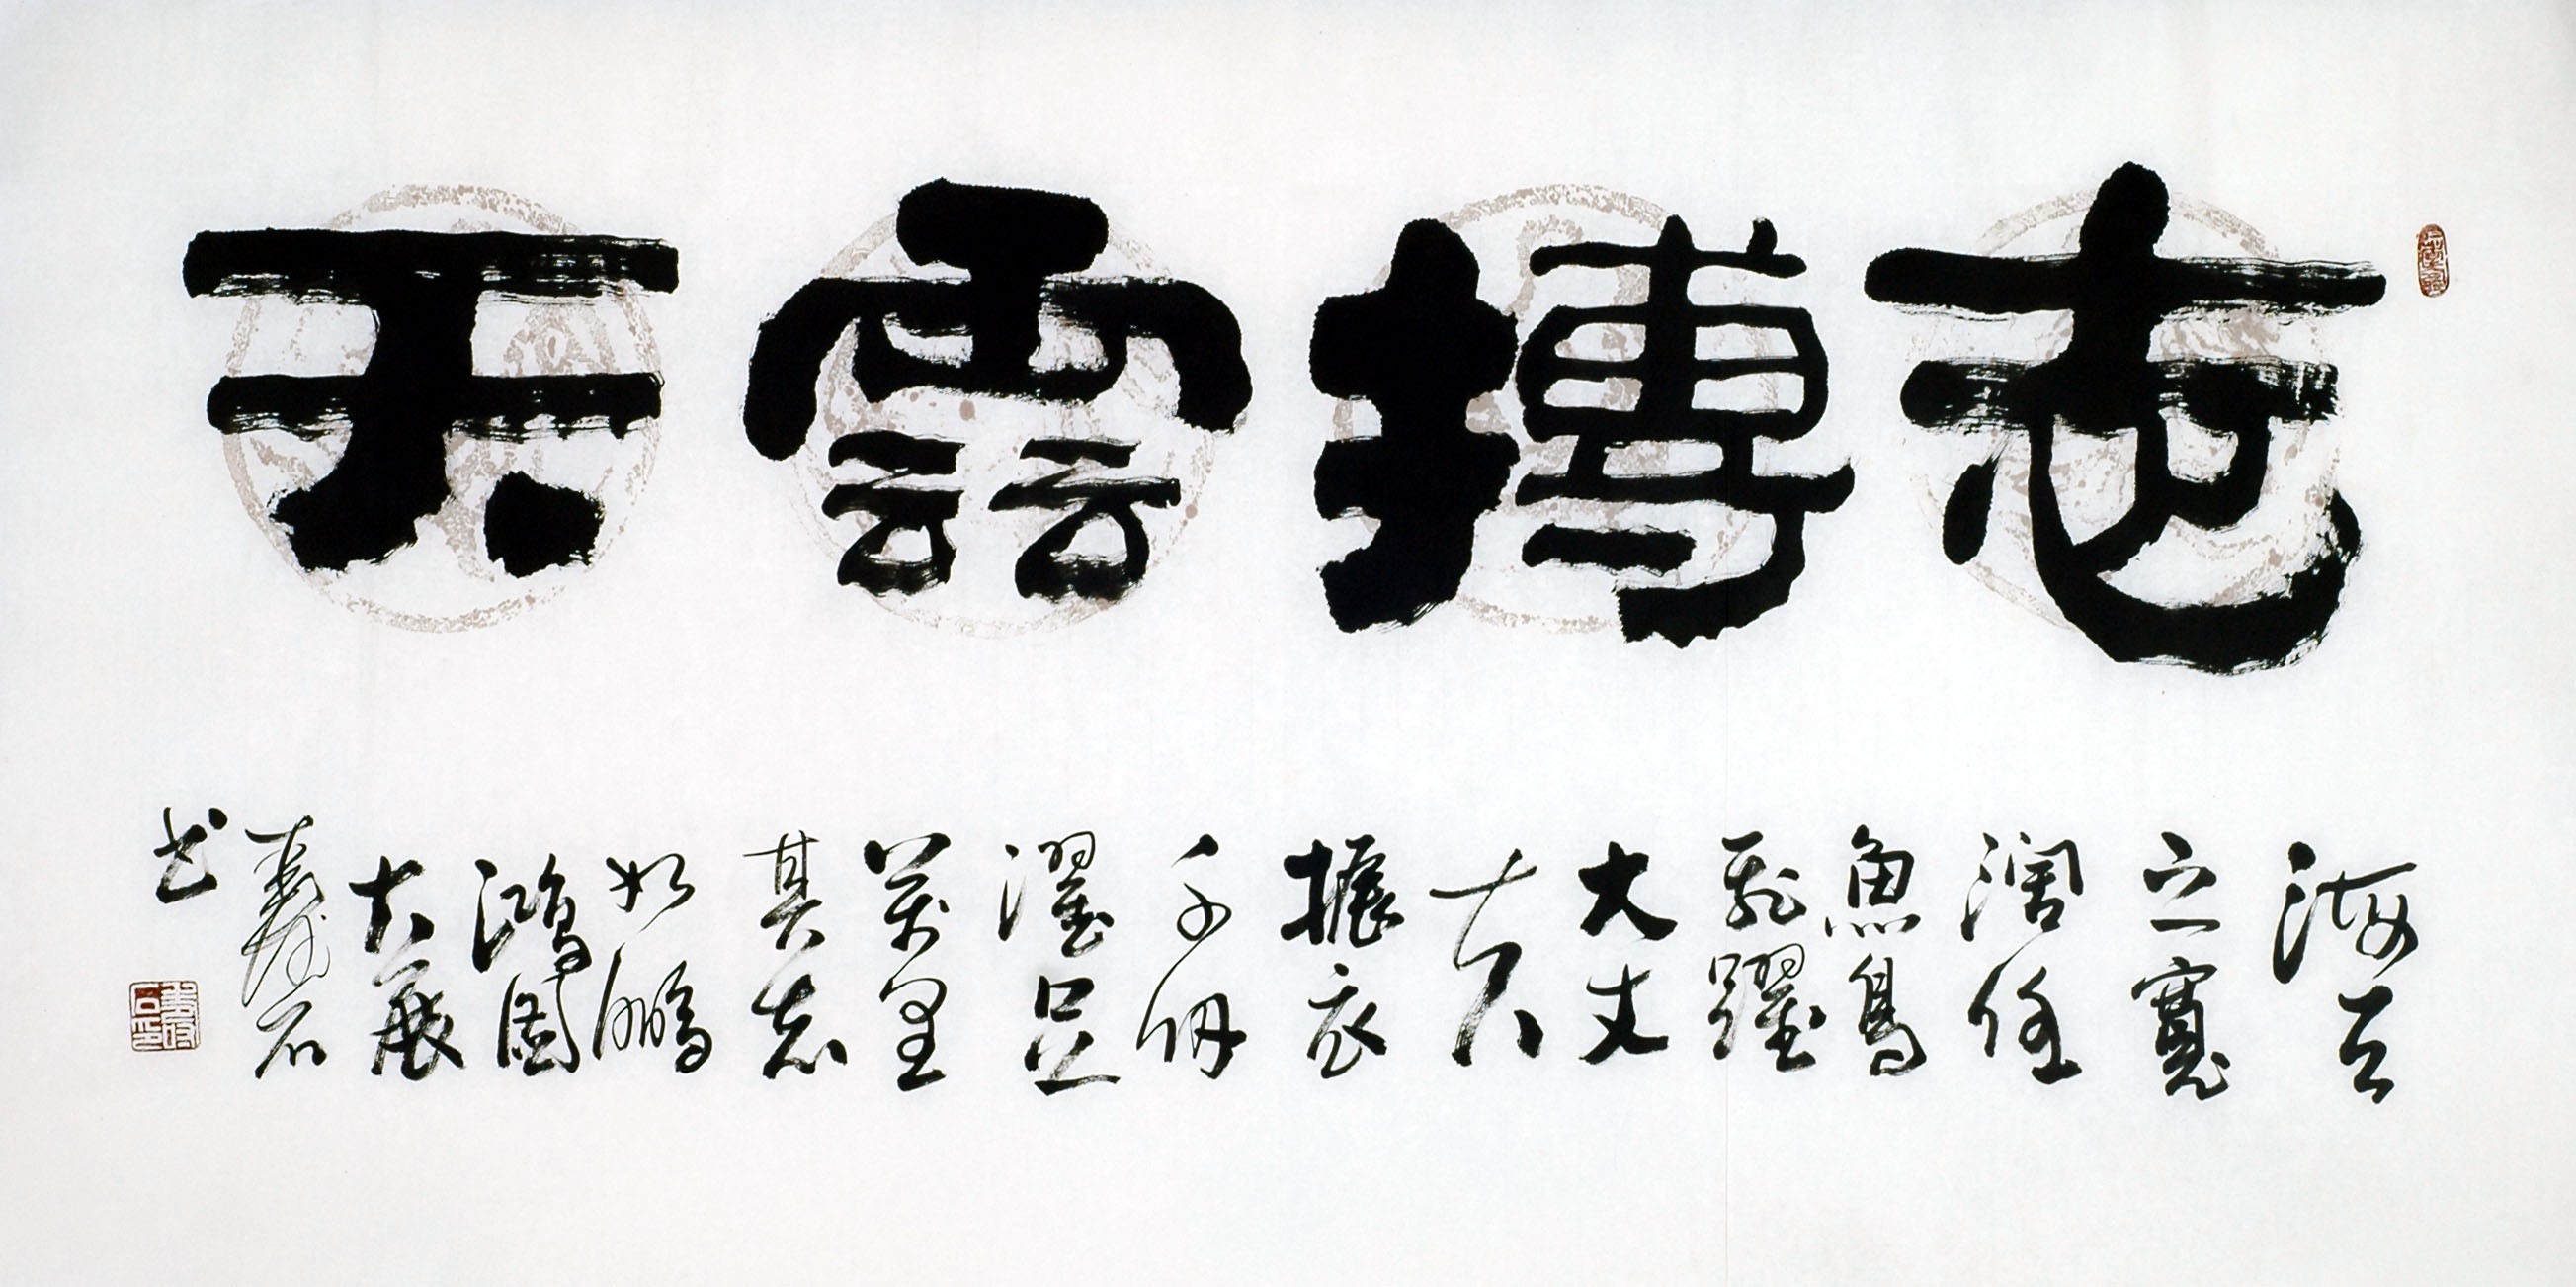 志搏雲天
海天
之寬
闊任
魚鳥
飛躍
大丈
夫
振衣
千仞
濯足
萬里
其志
如鵬
鴻圖
大展
壽石
书